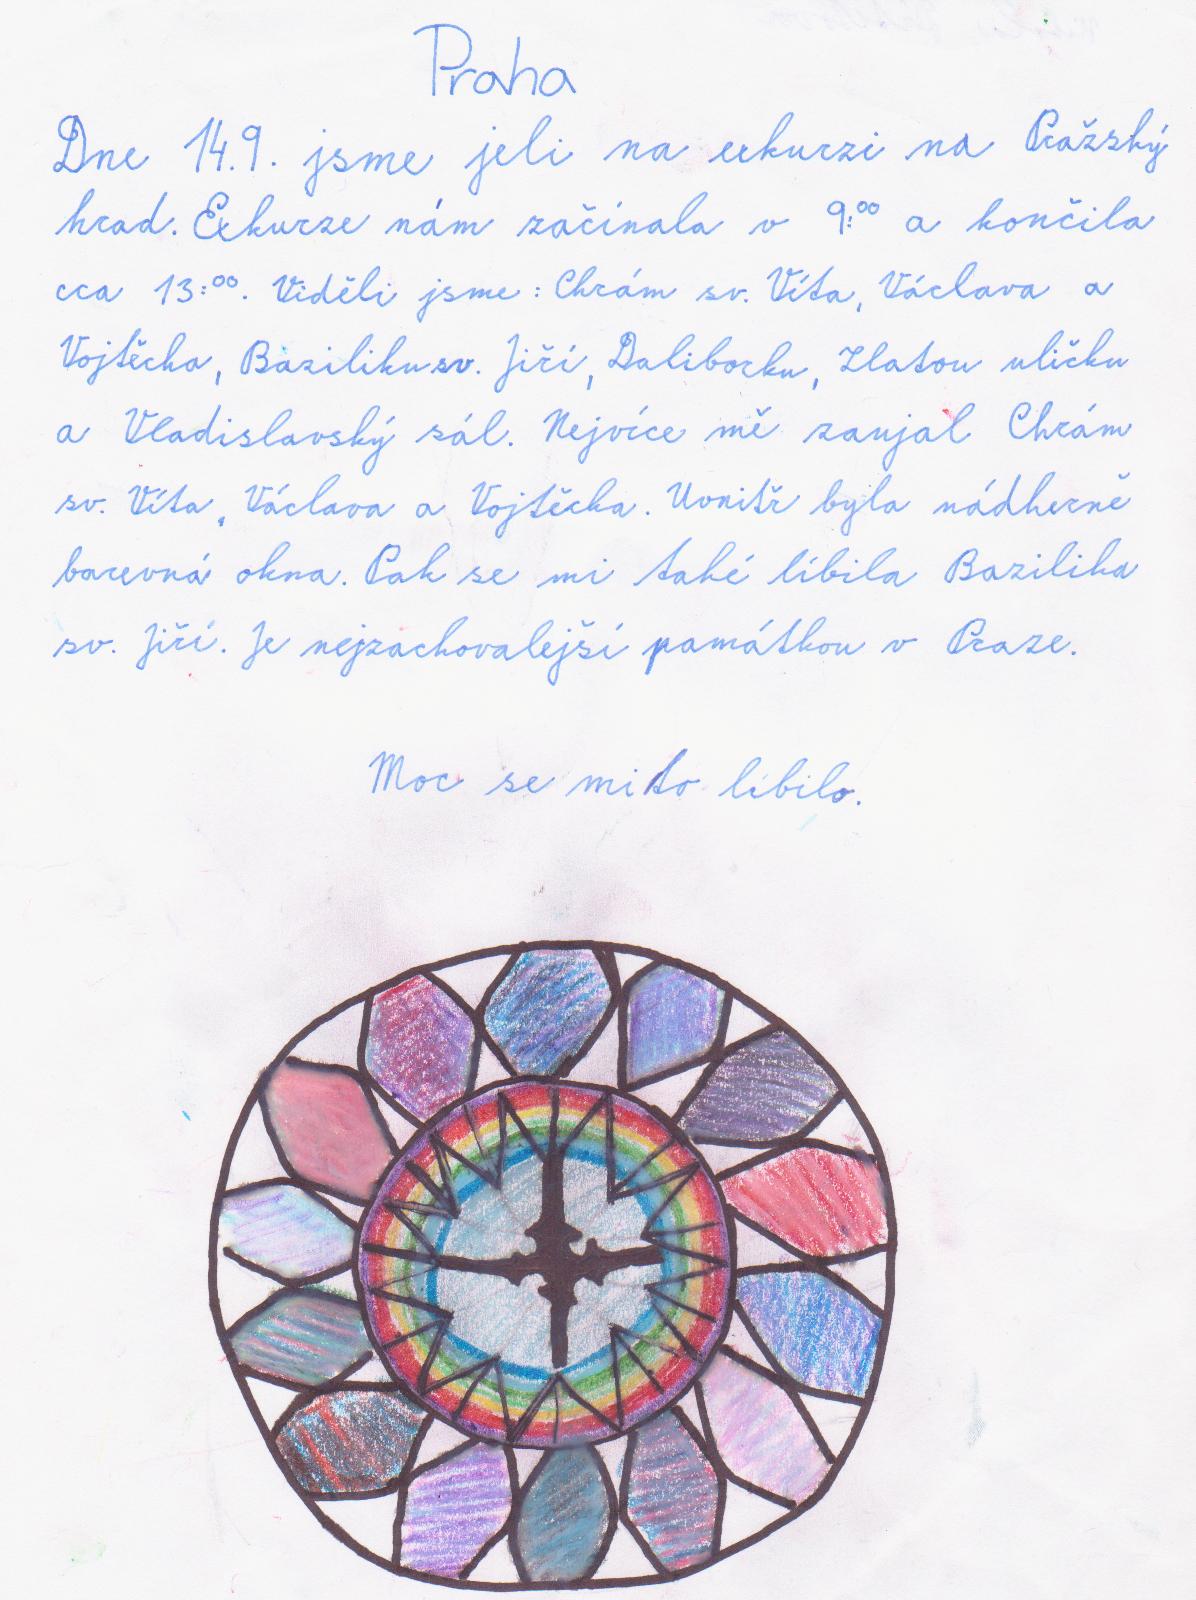 Praha
Dne 14.9. jsme jeli na exkurzi na Pražský
hrad. Exkurze nám začínala v 9:00 a končila
cca 13:00. Viděli jsme: Chrám sv. Víta, Václava a
Vojtěcha, Baziliku sv. Jiří, Daliborku, Zlatou uličku
a Vladislavský sál. Nejvíce mě zaujal Chrám
sv. Víta, Václava a Vojtěcha. Uvnitř byla nádherně
barevná okna. Pak se mi také líbila Bazilika
sv. Jiří. Je nejzachovalejší památkou v Praze.
Moc se mi to líbilo.